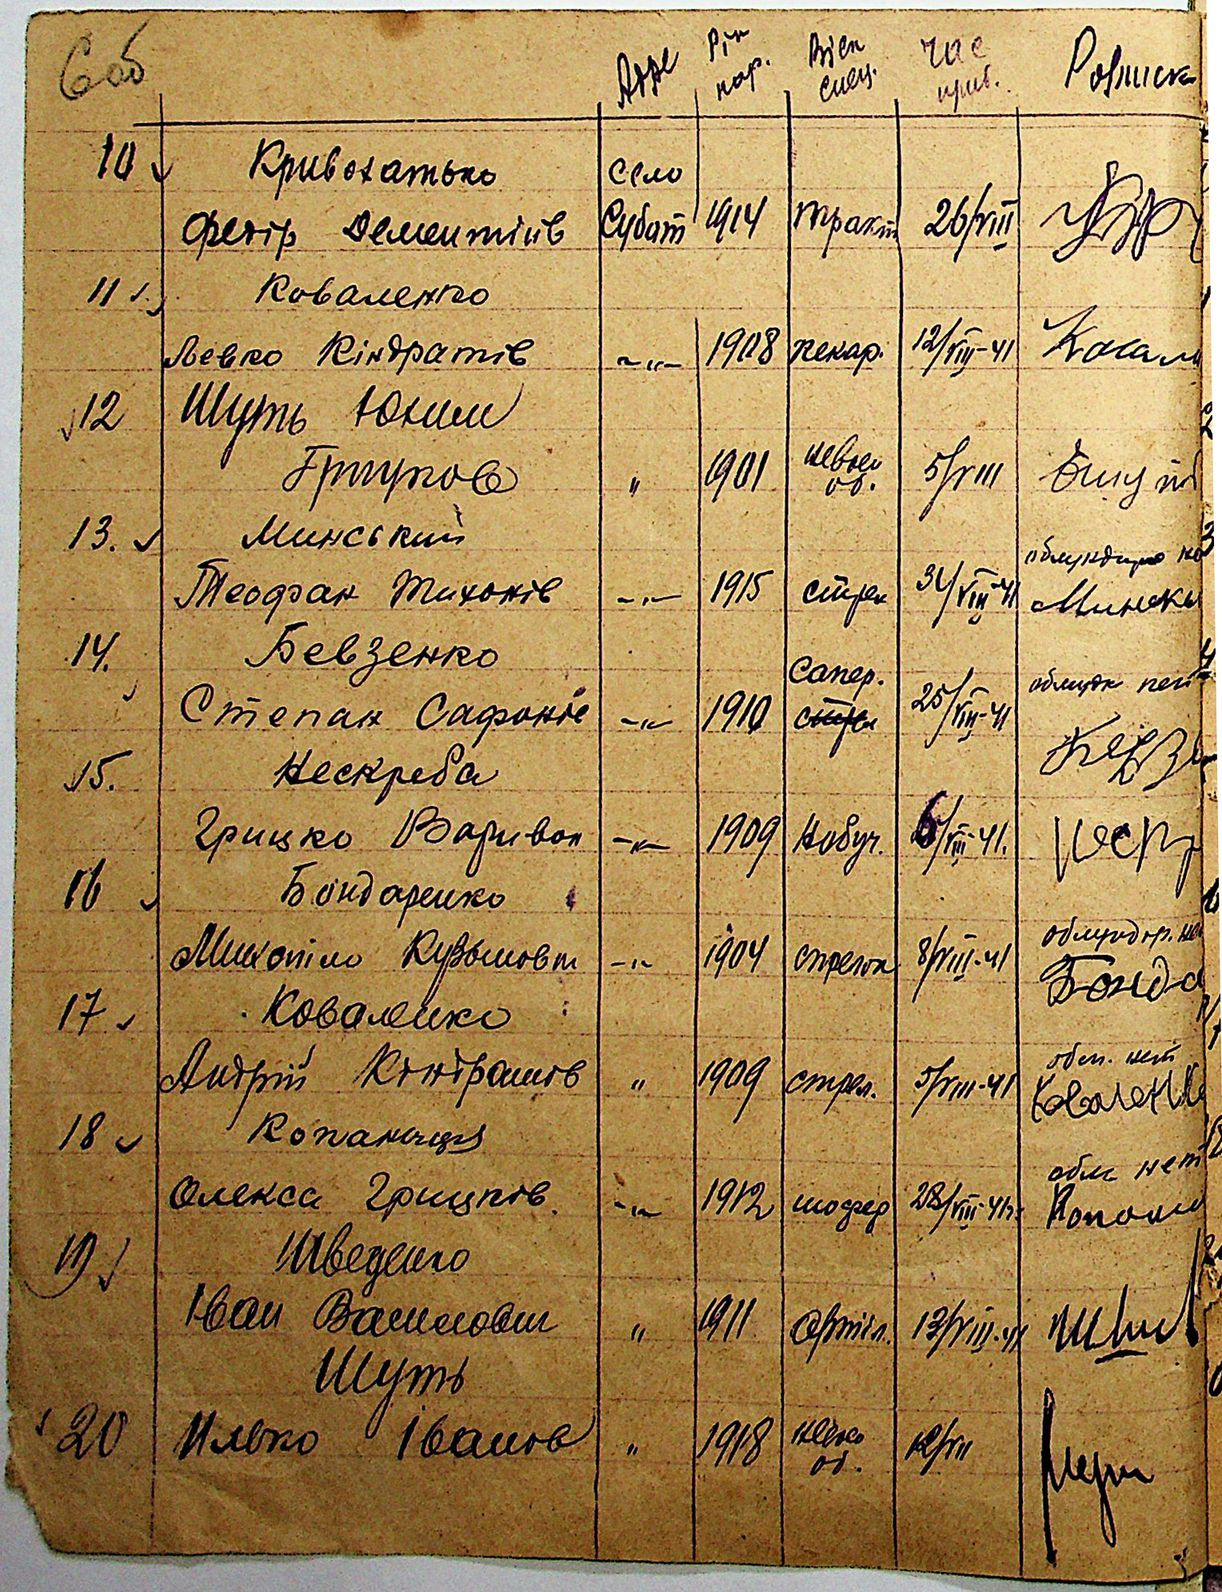 Адре Рік нар. Війк спец. Час приб. Розписка
10 Кривохатько село
Федір Дементіїв Субот 1914 тракт 26/VIII
11 Коваленко
Левко Кіндратів -"- 1908 пекар. 12/VIII-41
12 Шуть Юхим
Грицков " 1901 невоен об. 5/VIII
13. Минський
Теофан Тихонів -"- 1915 стрел 31/VIII-41 Минськ
14. Бевзенко
Степан Сафонів -"- 1910 Сапер. 25/VIII-41
15. Нескреба
Грицко Варивон -"- 1909 Необуч. 6/VIII-41.
16 Бондаренко
Михайло Кузьмович -"- 1904 стрелок 8/VIII-41 Бонда
17 Коваленко
Андрій Кіндратов " 1909 стрел. 5/VIII-41 обм. нет Коваленко
18 Копаниця
Олекса Грицків. -"- 1912 шофер 28/VIII-41 обм нет
19 Шведенко
Іван Васильович " 1911 Артіл. 13/VIII-41
Шуть
20 Илько Іванов " 1918 необ. 12/VII